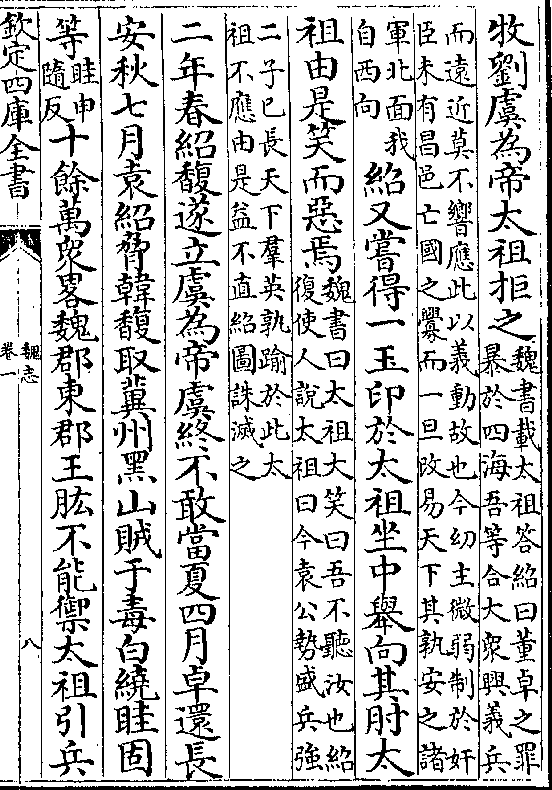 牧劉虞為帝太祖拒之魏書載太祖答紹曰董卓之罪暴於四海吾等合大衆興義兵
而遠近莫不響應此以義動故也今幼主微弱制於奸臣未有昌邑亡國之釁而一旦改易天下其孰安之諸
軍北面我自西向紹又嘗得一玉印於太祖坐中舉向其肘太
祖由是笑而惡焉魏書曰太祖大笑曰吾不聽汝也紹復使人說太祖曰今袁公勢盛兵強
二子已長天下羣英孰踰於此太祖不應由是益不直紹圖誅滅之
二年春紹馥遂立虞為帝虞終不敢當夏四月卓還長
安秋七月袁紹脅韓馥取冀州黑山賊于毒白繞眭固
等眭申隨反十餘萬衆畧魏郡東郡王肱不能禦太祖引兵
欽定四庫全書
魏志
卷一
八